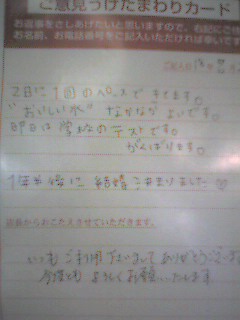 ご意見うけたまわりカード
お返事をさしあげたいと思いますので、右記にご住
お名前、お電話番号をご記入いただければ幸いです
2日に1回のペースできてます。
"おいしい水" なかなかよいです。
明日は学校のテストです。
がんばります。
1年の後に結婚
店長からおこたえさせていただきます。
いつもご利用下さいましてありがとうござい
今後ともよろしくお願いいたします